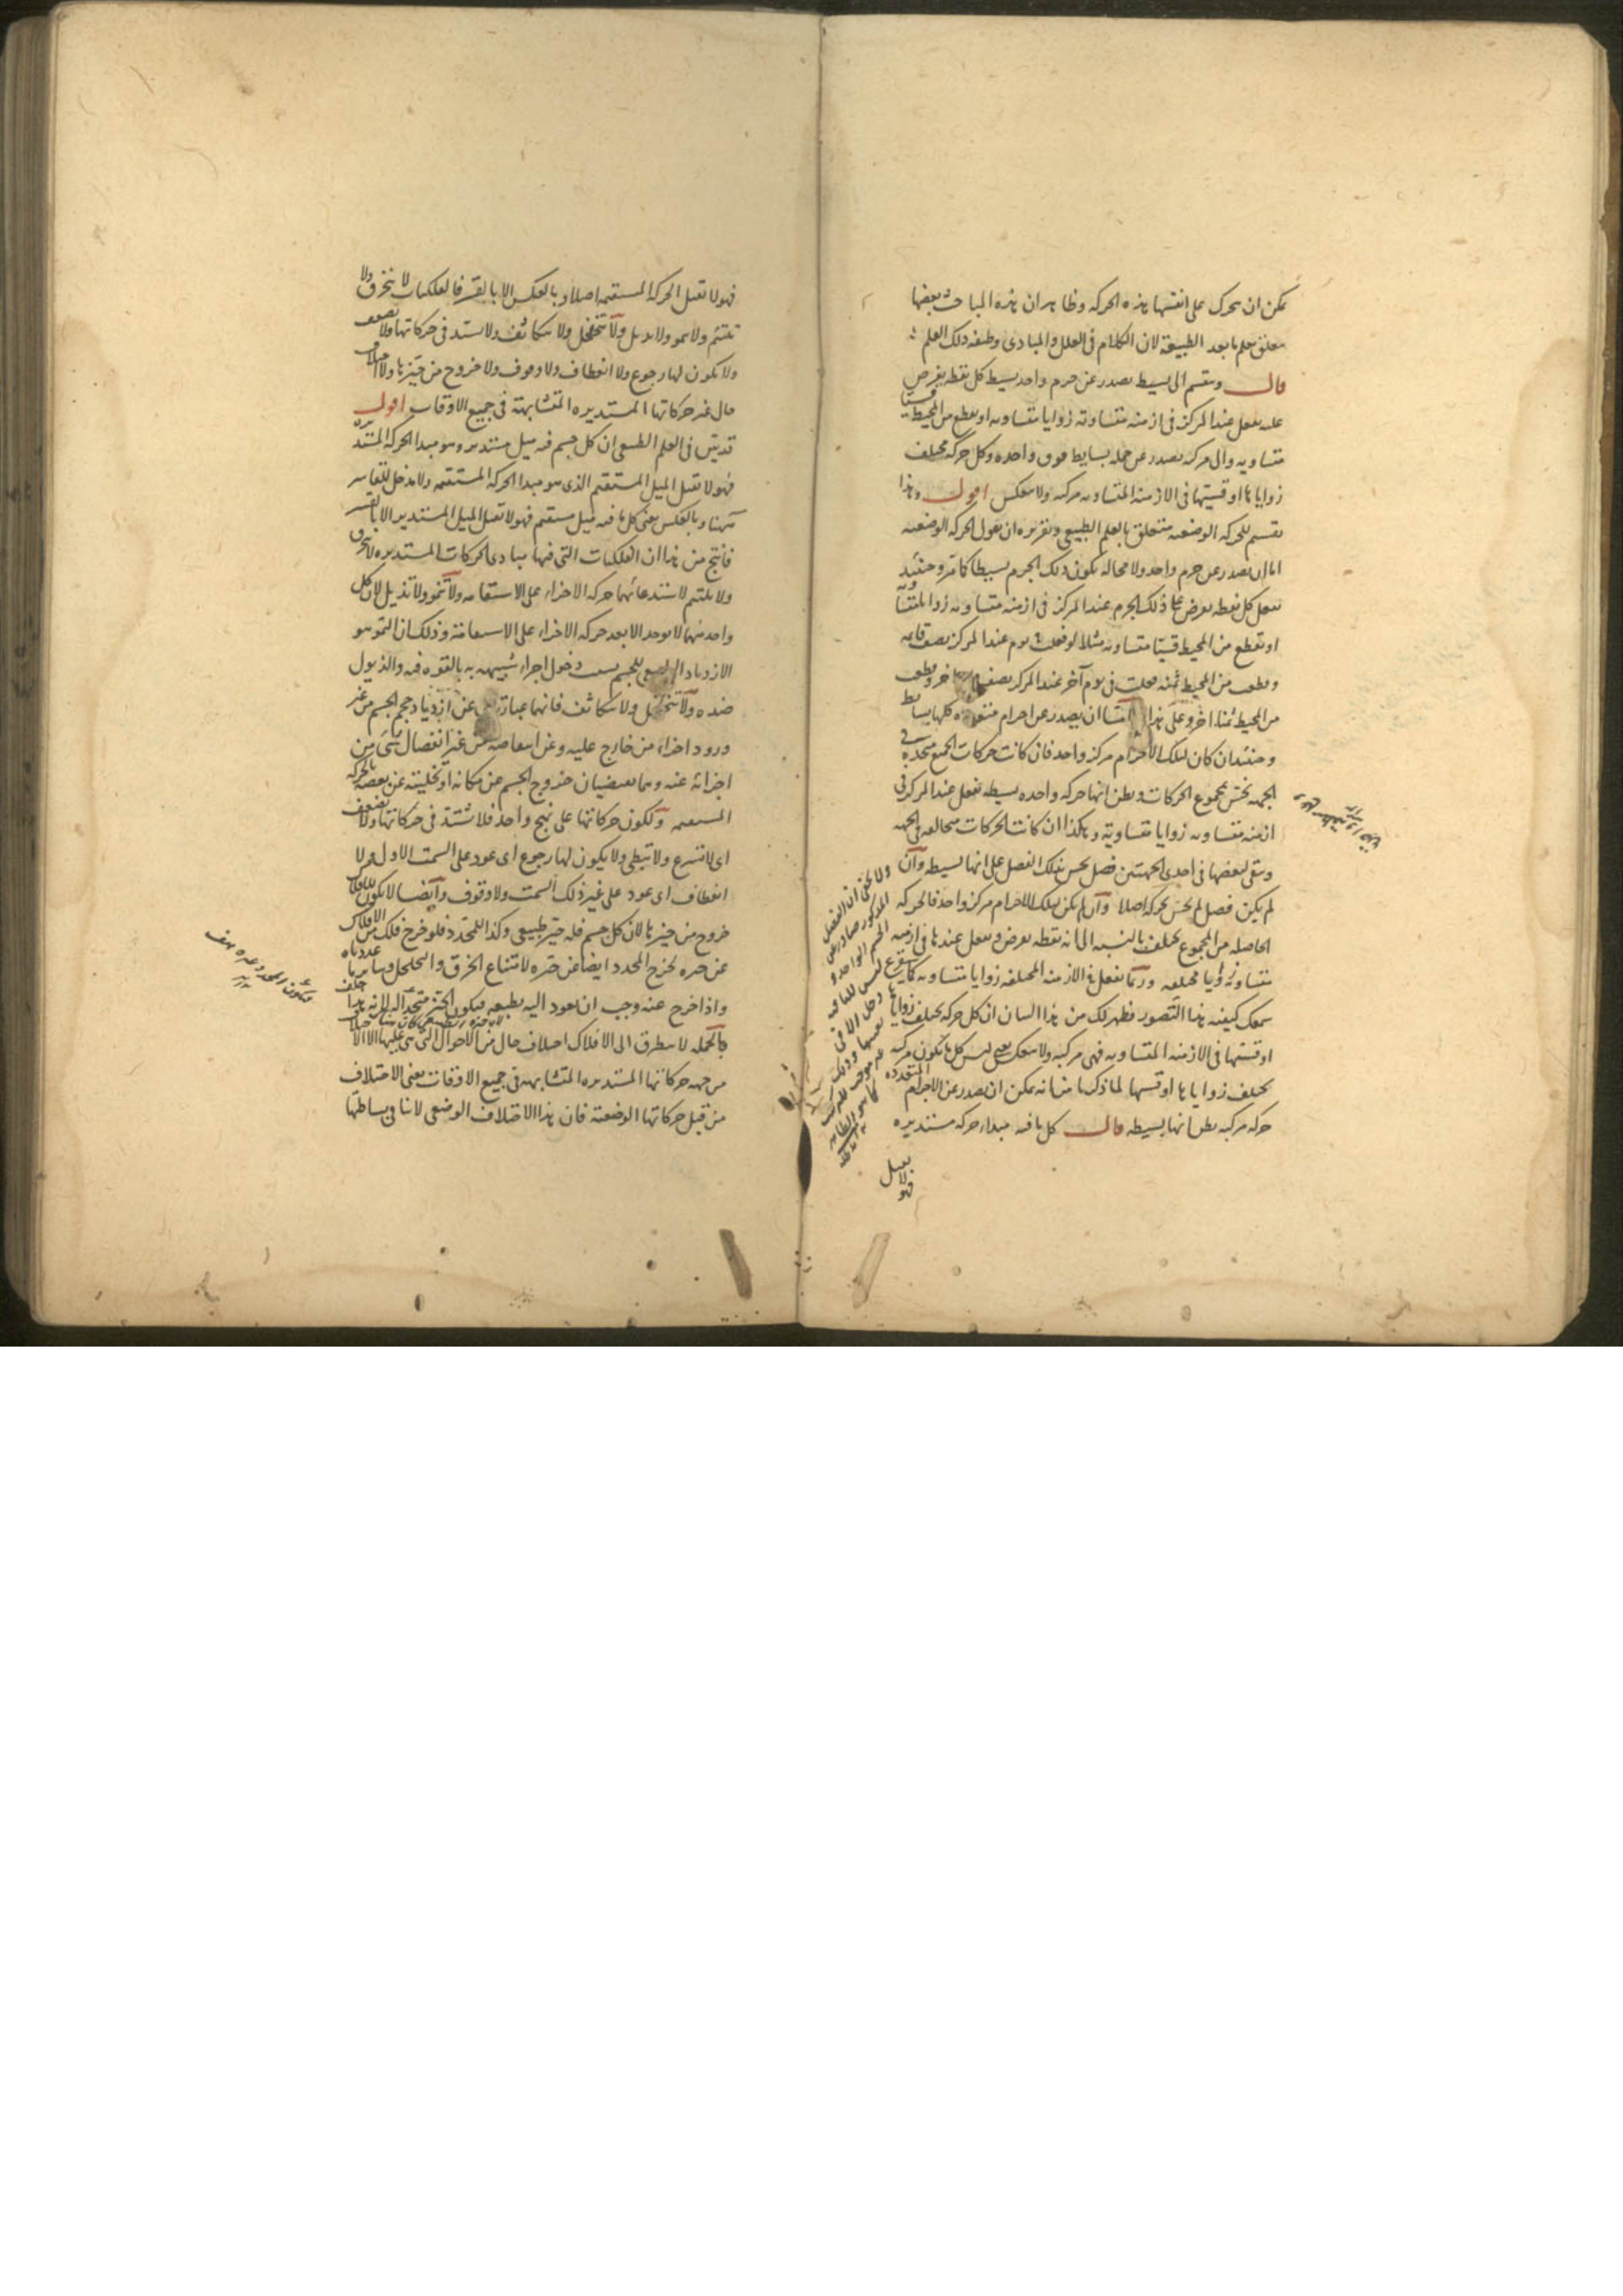 يمكن ان يتحرك على انفسها هذه الحركة وظاهر ان هذه المباحث بعضها
متعلق بعلم ما بعد الطبيعة لان الكلام فى العلل والمبادى وظيفه ذلك العلم
قال وتنقسم الى بسيطه تصدر عن جرم واحد بسيط كل نقطه يفرض
عليه تفعل عند المركز فى ازمنه متساوية زوايا متساويه او تقطع من المحيط قسيا
متساويه والى مركبه تصدر عن جمله بسايط فوق واحده وكل حركه تختلف
زواياها او قسيتها فى الازمنه المتساويه مركبه ولا ينعكس اقول وهذا
تقسيم للحركه الوضعيه متعلق بالعلم الطبيعى وتقريره ان نقول الحركه الوضعيه
اما ان تصدر عن جرم واحد ولا محاله يكون ذلك الجرم بسيطا كما مر وحينئذ
تفعل كل نقطه تفرض على ذلك الجرم عند المركز فى ازمنه متساويه زوايا متساويه
او تقطع من المحيط قسيا متساويه مثلا لو فعلت فى يوم عند المركز نصف قايمه
وقطعت من المحيط ثمنه فعلت فى يوم آخر عند المركز نصف اخر وقطعت
من المحيط ثمنا اخر وعلى هذا امّا ان تصدر عن اجرام متعدده كلها بسايط
وحينئذ ان كان لتلك الاجرام مركز واحد فان كانت حركات الجميع متحدة فى
الجهه تحس بمجموع الحركات ويظن انها حركه واحده بسيطه تفعل عند المركز فى
ازمنه متساويه زوايا متساوية وهكذا ان كانت الحركات متخالفه فى الجهه
وبقى لبعضها فى احدى الجهتين فضل يحس بذلك الفضل على انها بسيطه وان
لم يكن فضل لم يحس بحركه اصلا وان لم يكن لتلك الاجرام مركز واحد فالحركه
الحاصله من المجموع تختلف بالنسبه الى انه نقطه تفرض وتفعل عندها فى ازمنه
متساويه زوايا مختلفه وربما تفعل فى الازمنه المختلفه زوايا متساويه كما سيقرع
سمعك كيفيه هذا التصور فظهر لك من هذا البيان ان كل حركه تختلف زواياها
او قسيتها فى الازمنه المتساويه فهى مركبه ولا ينعكس يعنى ليس كل ما تكون مركبه
تختلف زواياها او قسيها لما ذكرنا من انه يمكن ان تصدر عن الاجرام المتعدده
حركه مركبه يظن انها بسيطه قال كل ما فيه مبداء حركه مستديره
فهو لا يقبل
ولا يخفى ان الفضل
المذكور صادر عن
الجسم الواحد
فهو لا تقبل الحركه المستقيمه اصلا وبالعكس الا بالقسر فالفلكيات لا تنخرق ولا
تلتئم ولا تنمو ولا تذبل ولا تتخلخل ولا تتكاثف ولا تشتد فى حركاتها ولا تضعف
ولا يكون لها رجوع ولا انعطاف ولا وقوف ولا خروج من حيّزها ولا اختلاف
حال غير حركاتها المستديره المتشابهة فى جميع الاوقات اقول
قد تبين فى العلم الطبيعى ان كل جسم فيه ميل مستدير وهو مبدا الحركه المستديره
فهو لا تقبل الميل المستقيم الذى هو مبدا الحركه المستقيمه ولا مدخل للقاسر
ههنا وبالعكس يعنى كل ما فيه ميل مستقيم فهو لا تقبل الميل المستدير الا بالقسر
فانتج من هذا ان الفلكيات التى فيها مبادى الحركات المستديره لا تنخرق
ولا تلتئم لاستدعائهما حركه الاجزاء على الاستقامه ولا تنمو ولا تذبل لان كل
واحد منهما لا يوجد الا بعد حركه الاجزاء على الاستقامة وذلك ان النمو هو
الازدياد الطبيعى للجسم بسبب دخول اجزاء شبيهه به بالقوه فيه والذبول
ضده ولا تتخلخل ولا تتكاثف فانهما عبارتان عن ازدياد حجم الجسم من غير
ورود اجزاء من خارج عليه وعن انتقاصه من غير انفصال شىء من
اجزائه عنه وهما يقتضيان خروج الجسم عن مكانه او تخليته عن بعضه بالحركه
المستقيمه ولكون حركاتها على نهج واحد فلا تشتد فى حركاتها ولا تضعف
اى لا تسرع ولا تبطى ولا يكون لها رجوع اى عود على السمت الاول ولا
انعطاف اى عود على غير ذلك السمت ولا وقوف وايضا لا يكون للافلاك
خروج من حيزها لان كل جسم فله حيز طبيعى وكذا للمحدد فلو خرج فلك من الافلاك
عن حيزه لخرج المحدد ايضا عن حيزه لامتناع الخرق والتخلخل وساير ما عددناه
واذا خرج عنه وجب ان يعود اليه بطبعه فيكون الحيز متحددا له لا به هذا خلف
وبالجمله لا يتطرق الى الافلاك اختلاف حال من الاحوال التى هى عليها الا
من جهه حركاتها المستديره المتشابهه فى جميع الاوقات يعنى الاختلاف
من قبل حركاتها الوضعية فان هذا الاختلاف الوضعى لا ينافى بساطتها